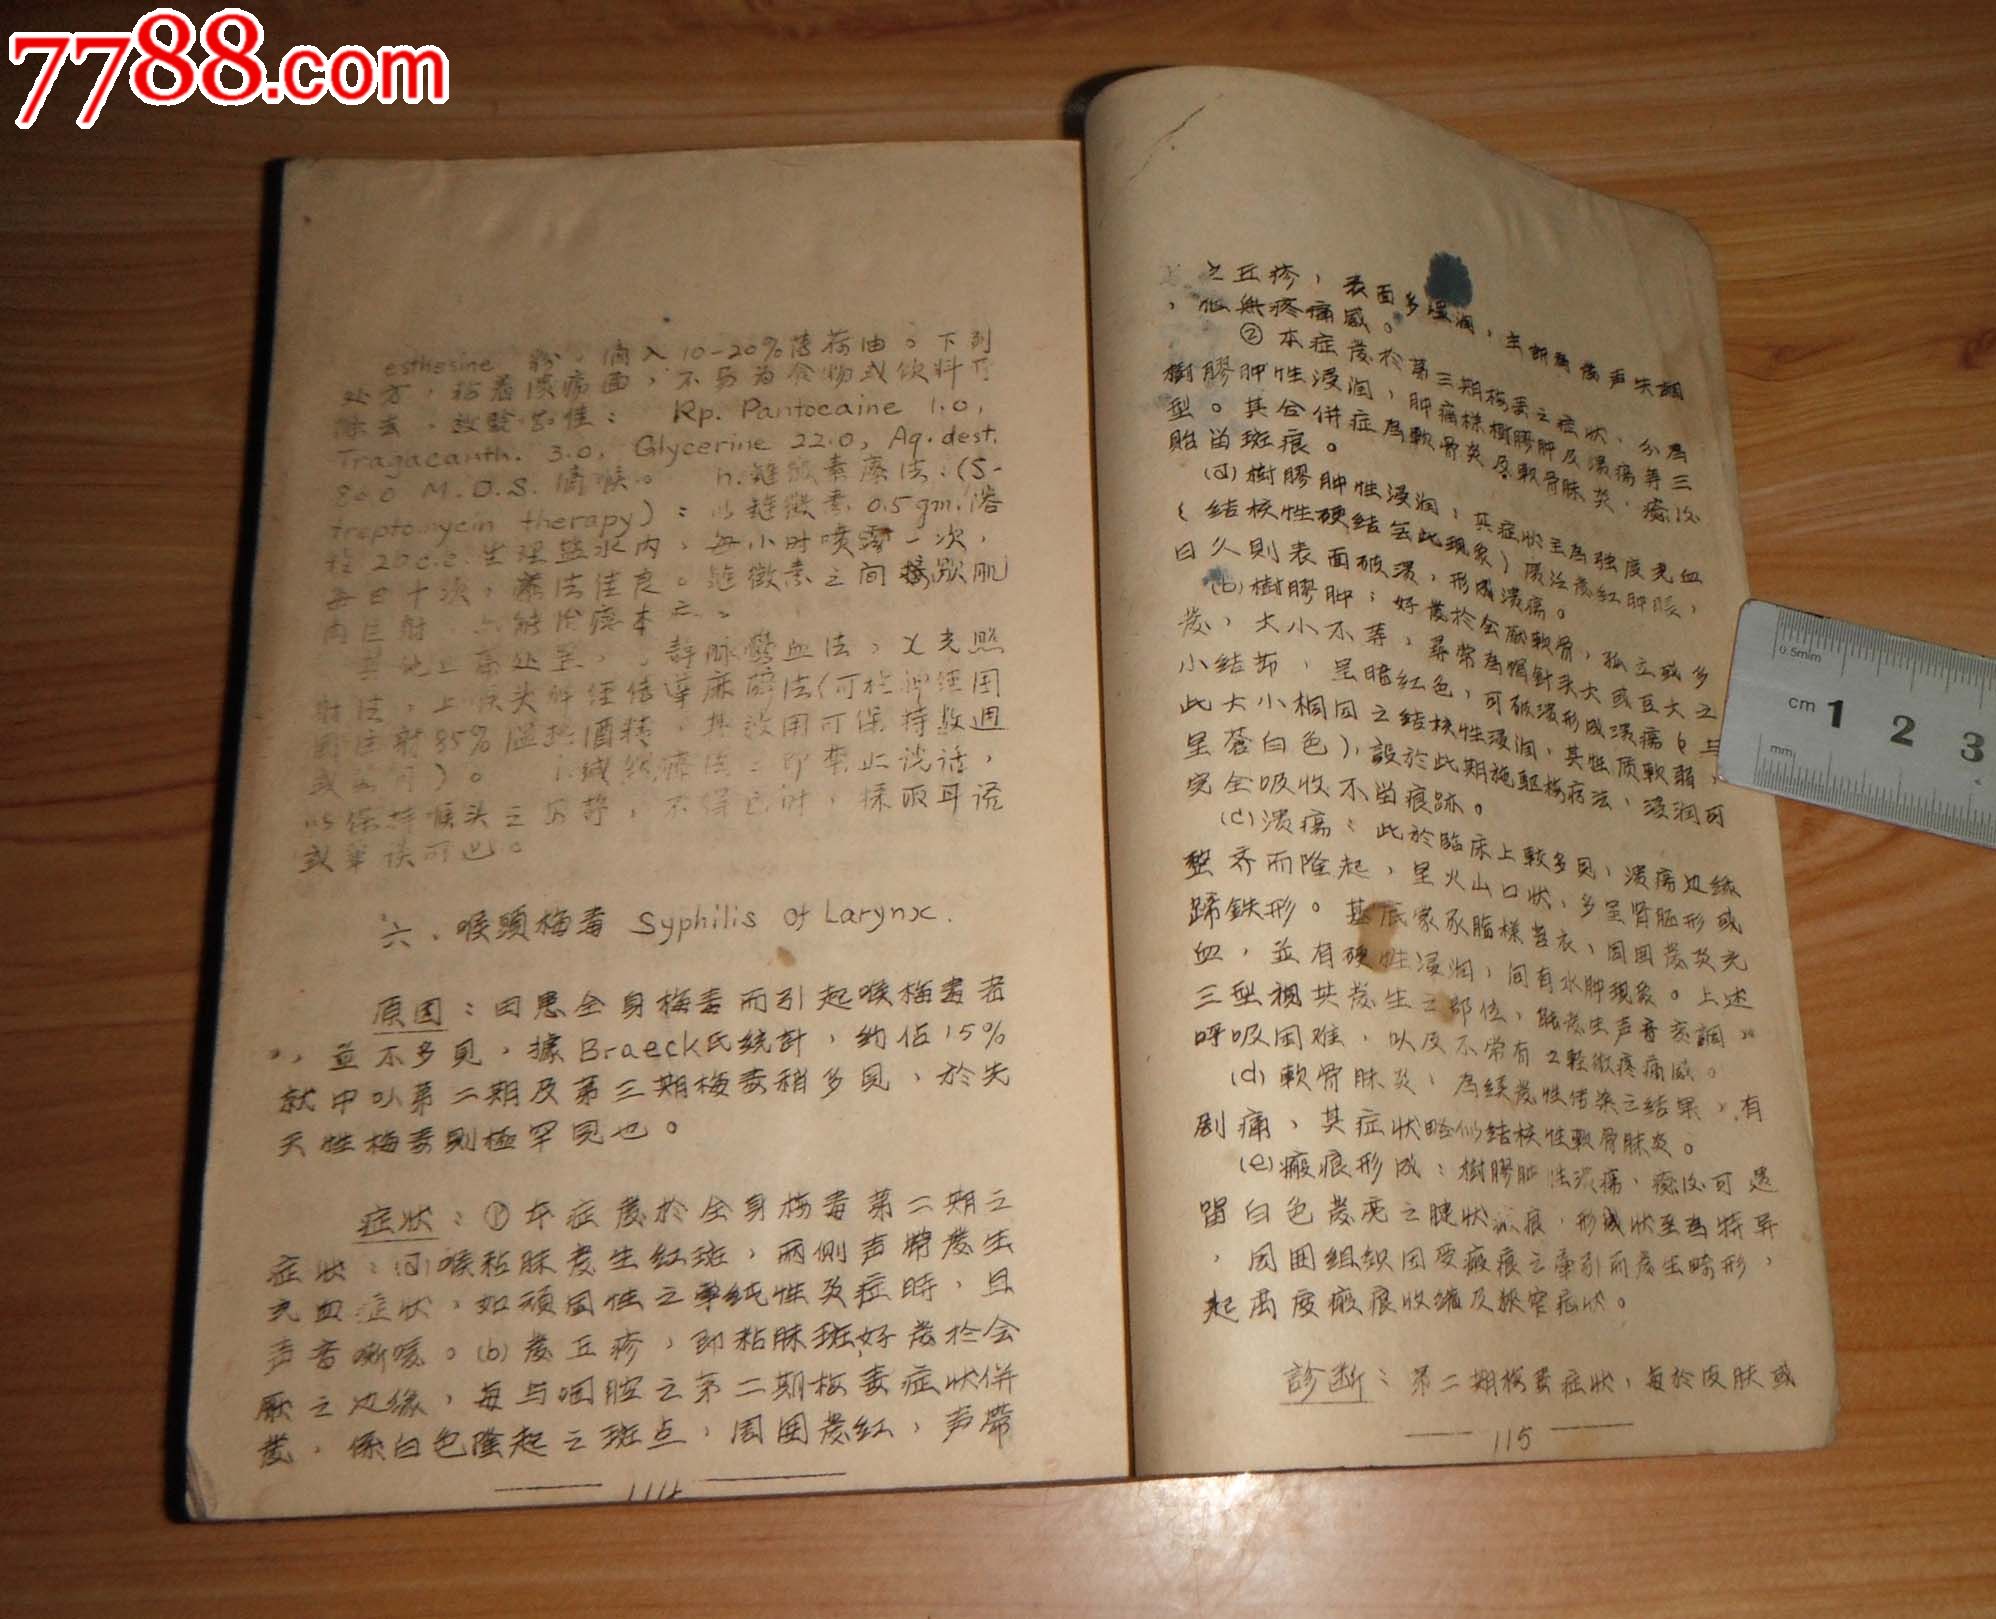 7788.com
esthesine 粉。滴入10-20%薄荷油。下列
处方，粘着溃疡面，不易为食物或饮料所
除去，效验尔佳： Rp. Pantocaine 1.0,
Tragacanth. 3.0, Glycerine 22.0, Aq. dest.
80.0 M.D.S. 滴喉。 h.鏈黴素療法：(S-
treptomycin therapy)：以鏈黴素0.5gm.溶
於20c.c.生理盐水内，每小时喷雾一次，
每日十次，療法佳良。鏈黴素之间接肌
内注射，亦能治療本症。
其他上高处置，静脉鬱血法，X光照
射法，上喉头神经传導麻醉法(可於神经周
圍注射85%温热酒精，其效用可保持数週
或数月)。 i.缄默療法：即禁止谈话，
以保持喉头之安静，不得已时，採取耳语
或筆谈可也。
六．喉頭梅毒 Syphilis of Larynx.
原因：因患全身梅毒而引起喉梅毒者
，並不多見，據Braeck氏統計，約佔15%
就中以第二期及第三期梅毒稍多見，於先
天性梅毒則極罕見也。
症狀：①本症發於全身梅毒第二期之
症狀：(a)喉粘膜發生紅斑，兩側声帶發生
充血症狀，如頑固性之單純性炎症時，且
声音嘶嗄。(b)發丘疹，即粘膜斑，好發於会
厭之边缘，每与咽腔之第二期梅毒症狀併
發，係白色隆起之斑点，周圍發紅，声帶
114
之丘疹，表面多浸潤，主訴為發声失調
，但無疼痛感。
②本症發於第三期梅毒之症狀，分為
樹膠肿性浸潤，肿瘍樣樹膠肿及潰瘍等三
型。其合併症為軟骨炎及軟骨膜炎，癒後
貽留斑痕。
(a)樹膠肿性浸潤；其症狀主為強度充血
(結核性硬結無此現象)廣泛發紅肿脹，
日久則表面破潰，形成潰瘍。
(b)樹膠肿；好發於会厭軟骨，孤立或多
發，大小不等，尋常為帽針头大或豆大之
小結節，呈暗紅色，可破潰形成潰瘍(与
此大小相同之結核性浸潤，其性质軟弱，
呈蒼白色)，設於此期施驅梅疗法，浸潤可
完全吸收不留痕跡。
(c)潰瘍：此於臨床上較多見，潰瘍边缘
整齐而隆起，呈火山口狀，多呈肾脏形或
蹄鉄形。基底蒙豕脂様苔衣，周圍發炎充
血，並有硬性浸潤，间有水肿现象。上述
三型視其發生之部位，能發生声音变調，
呼吸困难，以及不常有之輕微疼痛感。
(d)軟骨膜炎；為续發性传染之結果，有
剧痛，其症狀略似結核性軟骨膜炎。
(e)瘢痕形成：樹膠肿性潰瘍，癒後可遗
留白色發亮之腱狀瘢痕，形成狀至為特异
，周圍組織因受瘢痕之牽引而發生畸形，
起高度瘢痕收缩及狭窄症狀。
診断：第二期梅毒症狀，每於皮肤或
115
0.5mm
cm 1 2 3
mm